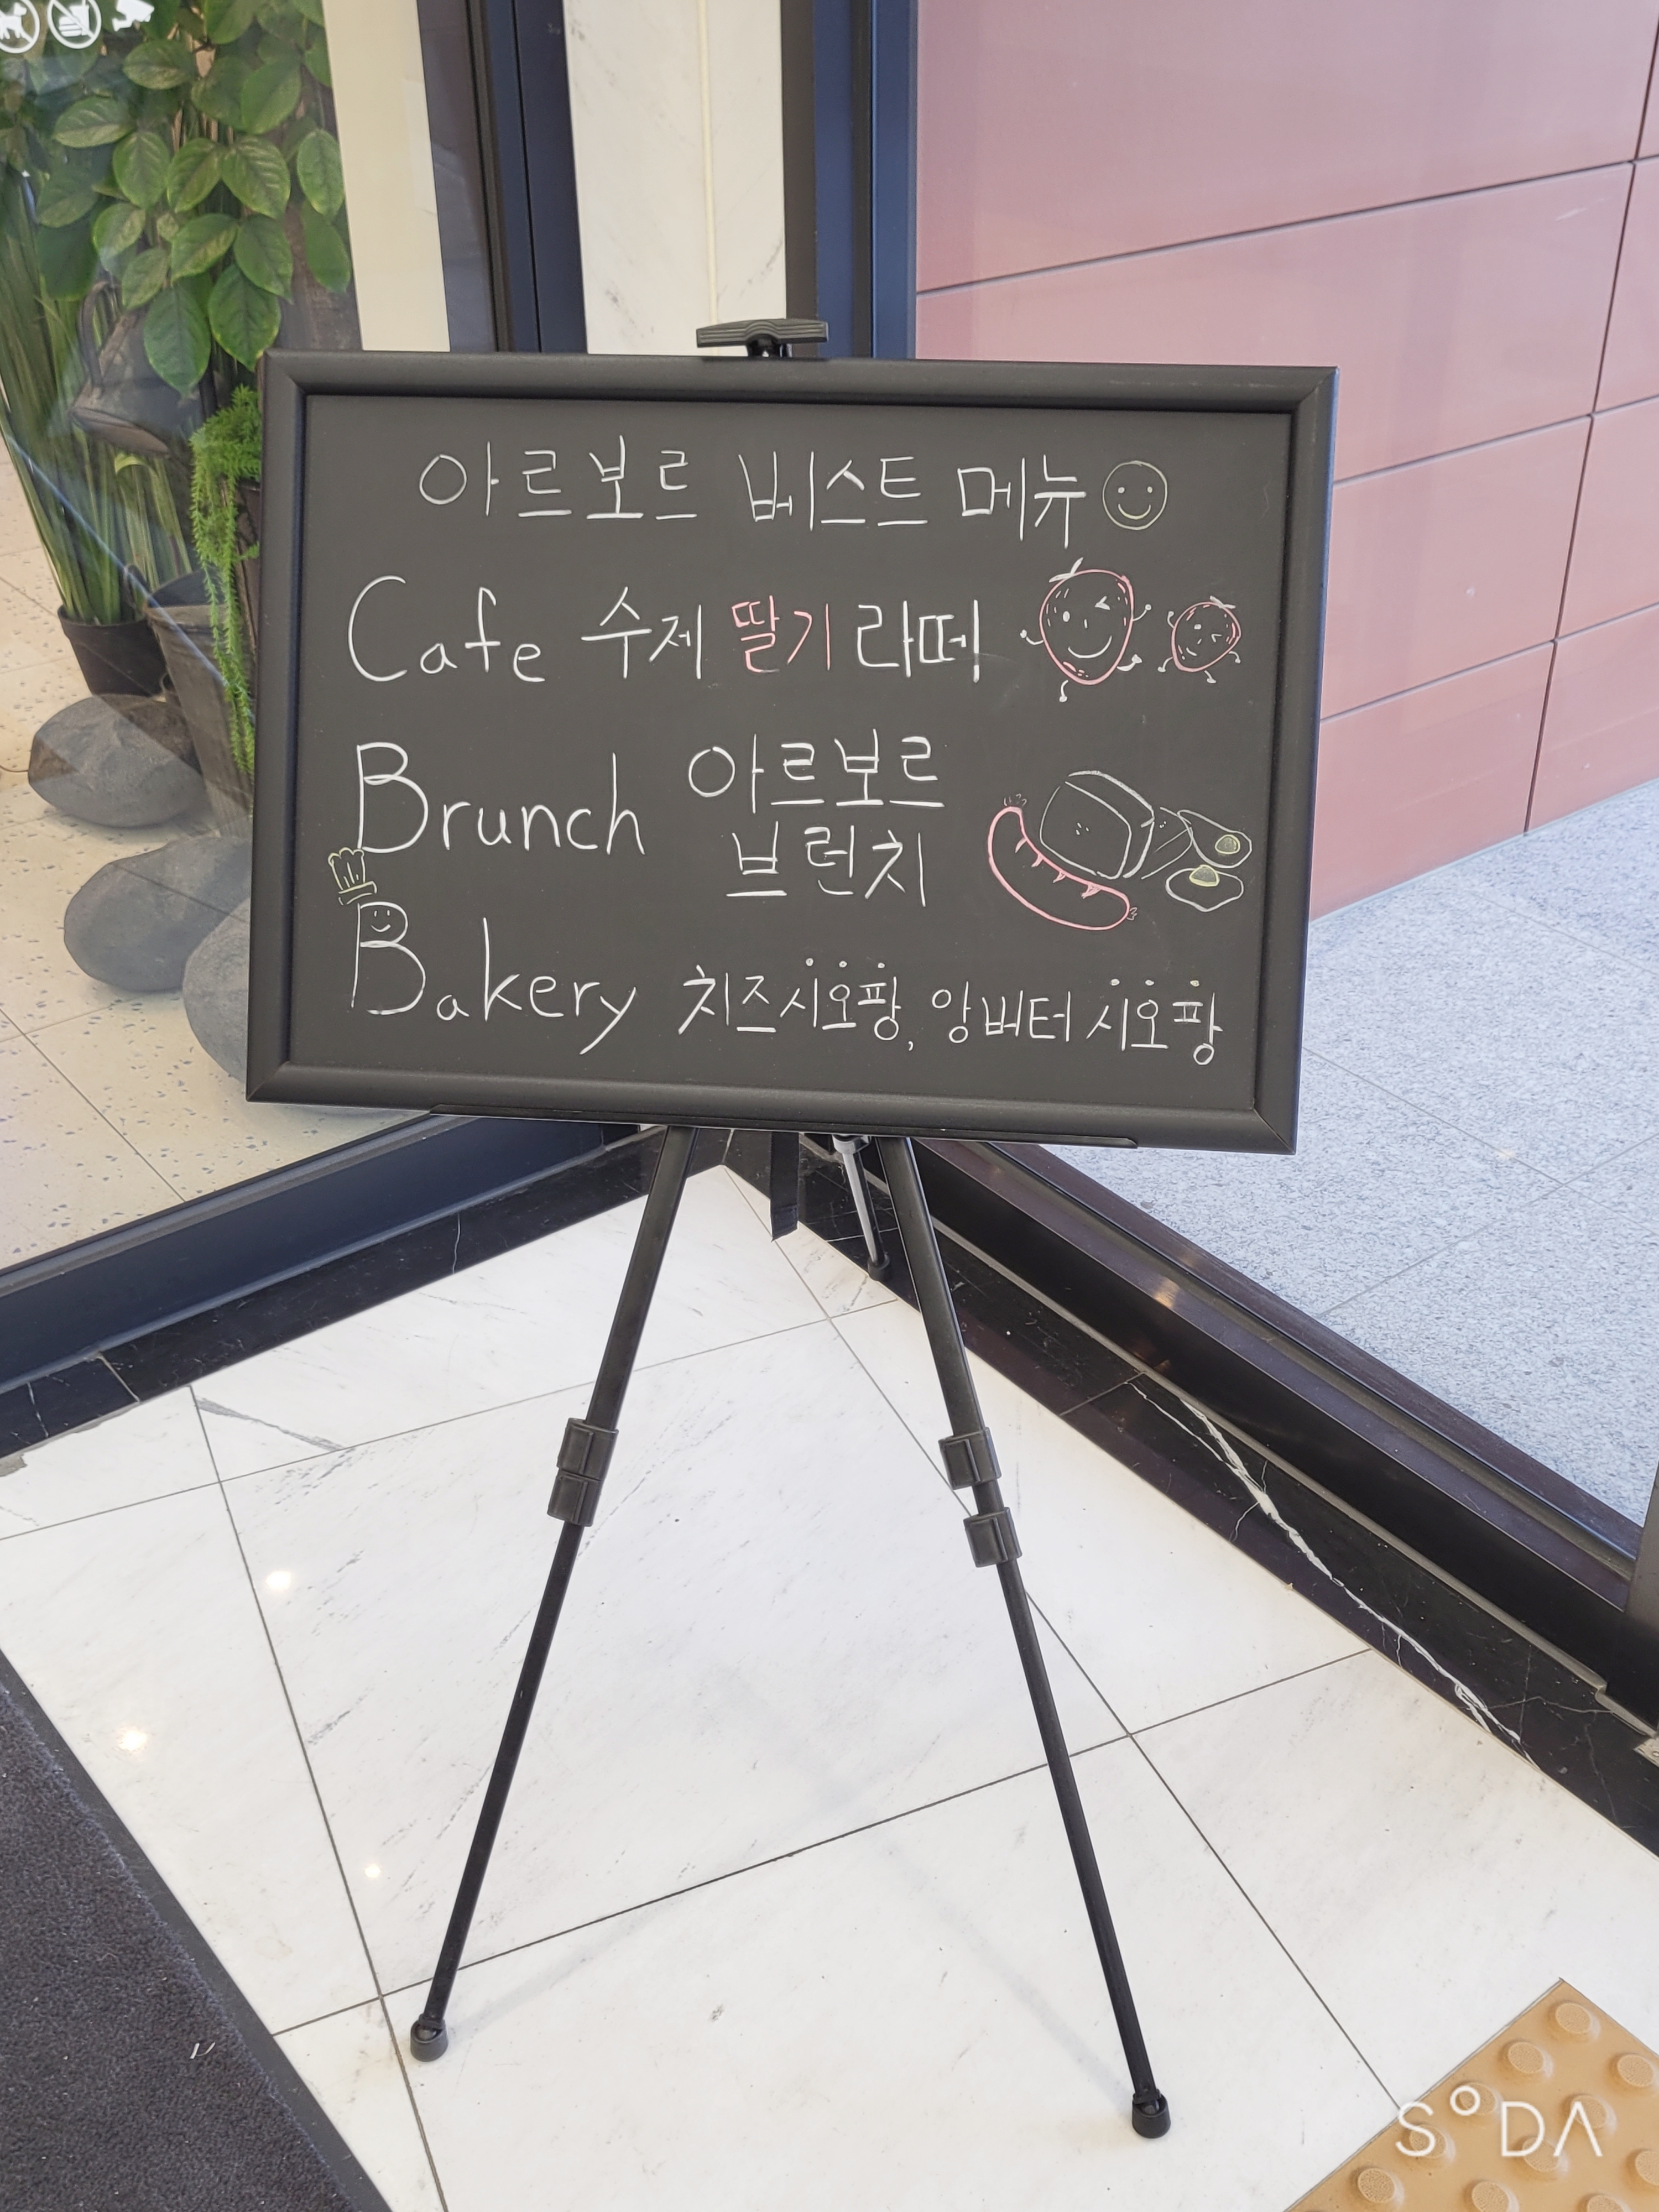 아르보르 베스트 메뉴
Cafe 수제 딸기 라떼!
Brunch 아르보르
브런치
Bakery 치즈시오팡, 앙버터 시오팡
SODA